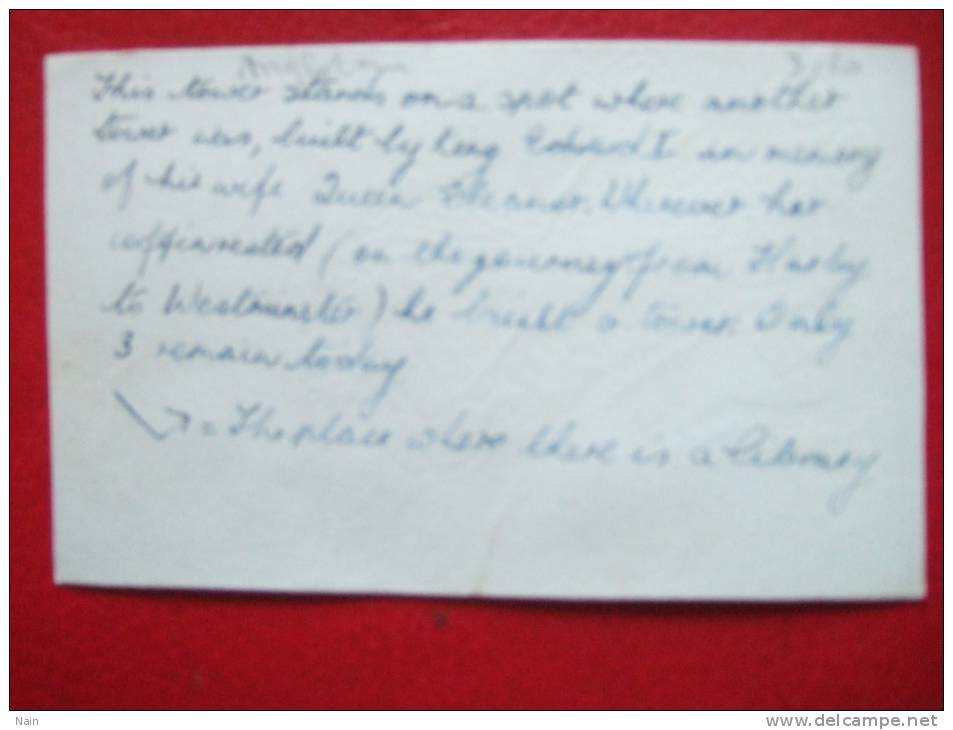 This tower stands on a spot where another
tower was, built by King Edward I in memory
of his wife Queen Eleanor. Wherever her
coffin rested (on the journey from Harby
to Westminster) he built a tower. Only
3 remain today
= The place where there is a library
Nain
www.delcampe.net